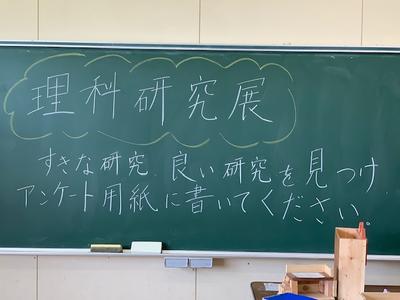 理科研究展
すきな研究、良い研究を見つけ
アンケート用紙に書いてください。